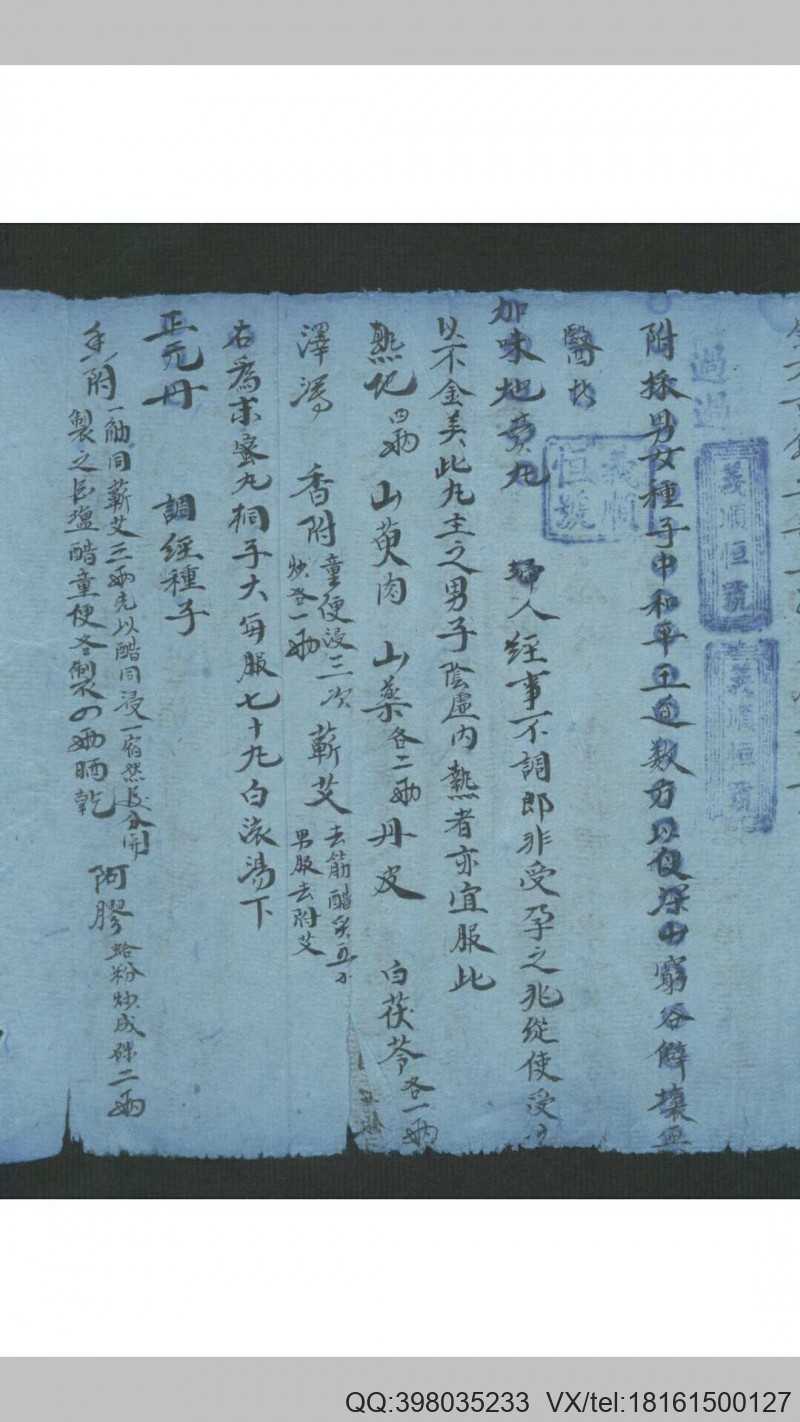 過過
義順恒號
義順恒號
附採男女種子中和平王道数方以便深山窮谷僻壤無
醫於
義順恒號
加味地黄丸 婦人經事不調即非受孕之兆從使受
以不金美此丸主之男子陰虛内熱者亦宜服此
熟地四両 山萸肉 山薬各二両 丹皮 白茯苓各一両
澤瀉 香附童便浸三次炒各一両 蘄艾去筋醋炙五小男服去附艾
右爲末蜜丸桐子大每服七十丸白滚湯下
正元丹 調經種子
香附一觔同蘄艾三両先以醋同浸一宿然後分開製之台塩醋童便各製四両晒乾 阿膠蛤粉炒成珠二両
QQ:398035233 VX/tel:18161500127